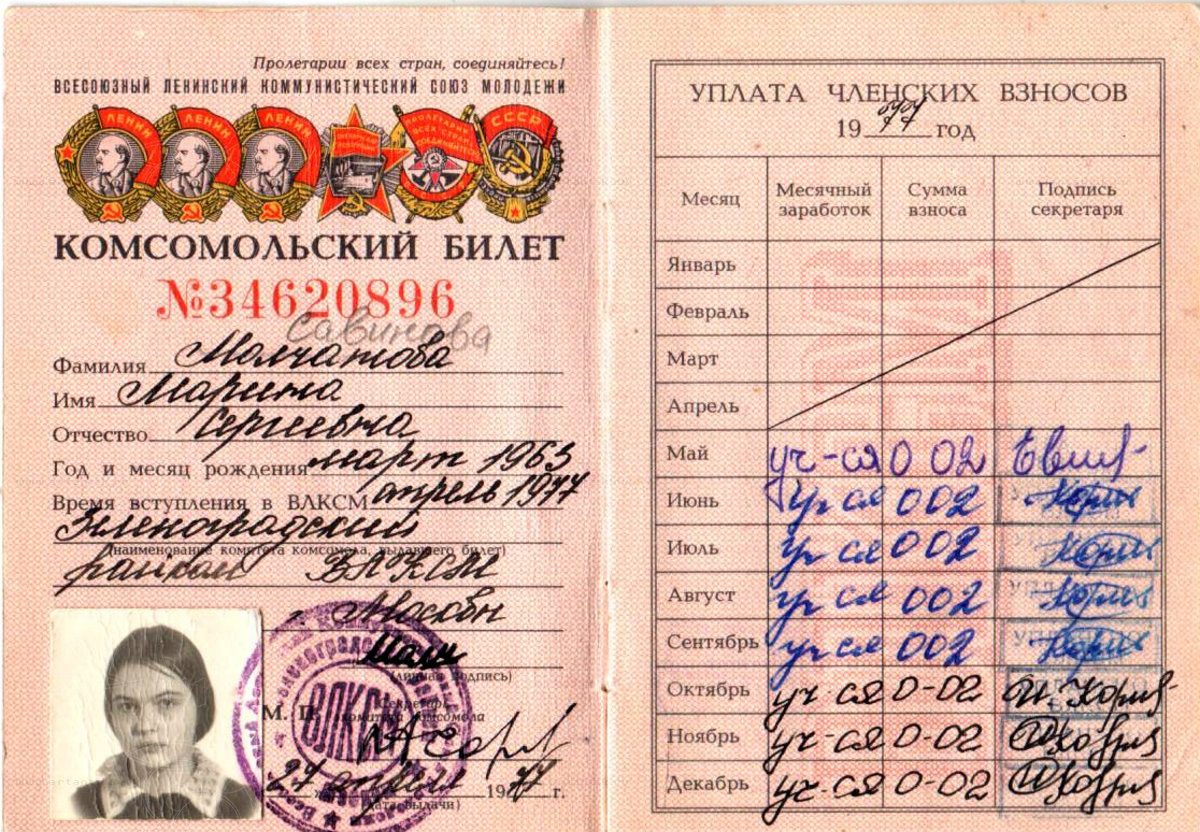 Пролетарии всех стран, соединяйтесь!
ВСЕСОЮЗНЫЙ ЛЕНИНСКИЙ КОММУНИСТИЧЕСКИЙ СОЮЗ МОЛОДЕЖИ
ЛЕНИН ЛЕНИН ЛЕНИН ПРОЛЕТАРИИ ВСЕХ СТРАН СОЕДИНЯЙТЕСЬ СССР
КОМСОМОЛЬСКИЙ БИЛЕТ
№34620896
Савинова
Фамилия Молчанова
Имя Марина
Отчество Сергеевна
Год и месяц рождения март 1963
Время вступления в ВЛКСМ апрель 1977
Зеленоградский
(наименование комитета комсомола, выдавшего билет)
райком ВЛКСМ
г. Москвы
(личная подпись)
М. П. Секретарь
комитета комсомола
27 апреля 1977 г.
(дата выдачи)
УПЛАТА ЧЛЕНСКИХ ВЗНОСОВ
1977 год
Месяц Месячный заработок Сумма взноса Подпись секретаря
Январь
Февраль
Март
Апрель
Май уч-ся 0 02
Июнь уч-ся 0 02
Июль уч-ся 0 02
Август уч-ся 0 02
Сентябрь уч-ся 0 02
Октябрь уч-ся 0-02
Ноябрь уч-ся 0-02
Декабрь уч-ся 0-02